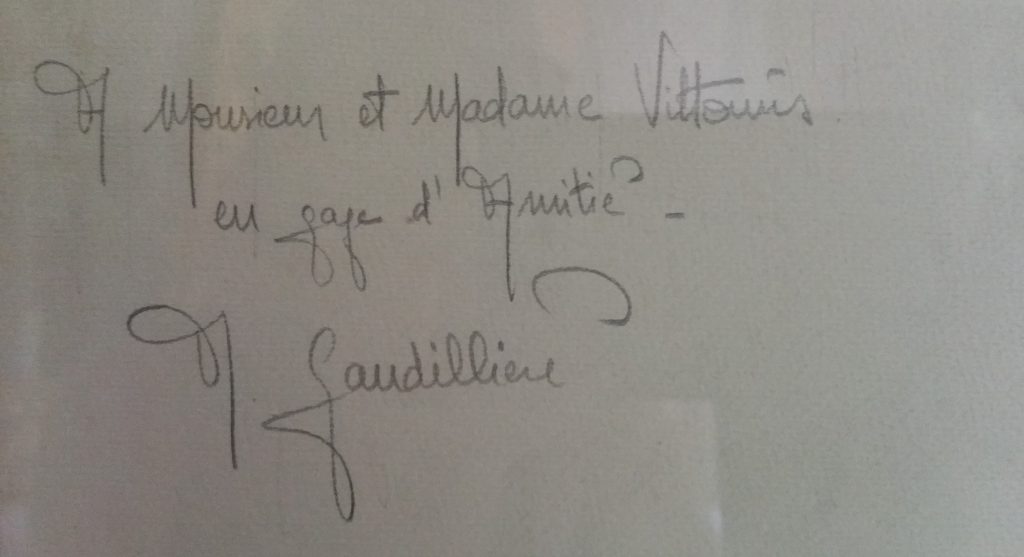 A Monsieur et Madame
en gage d'Amitié -
A Gaudilliere